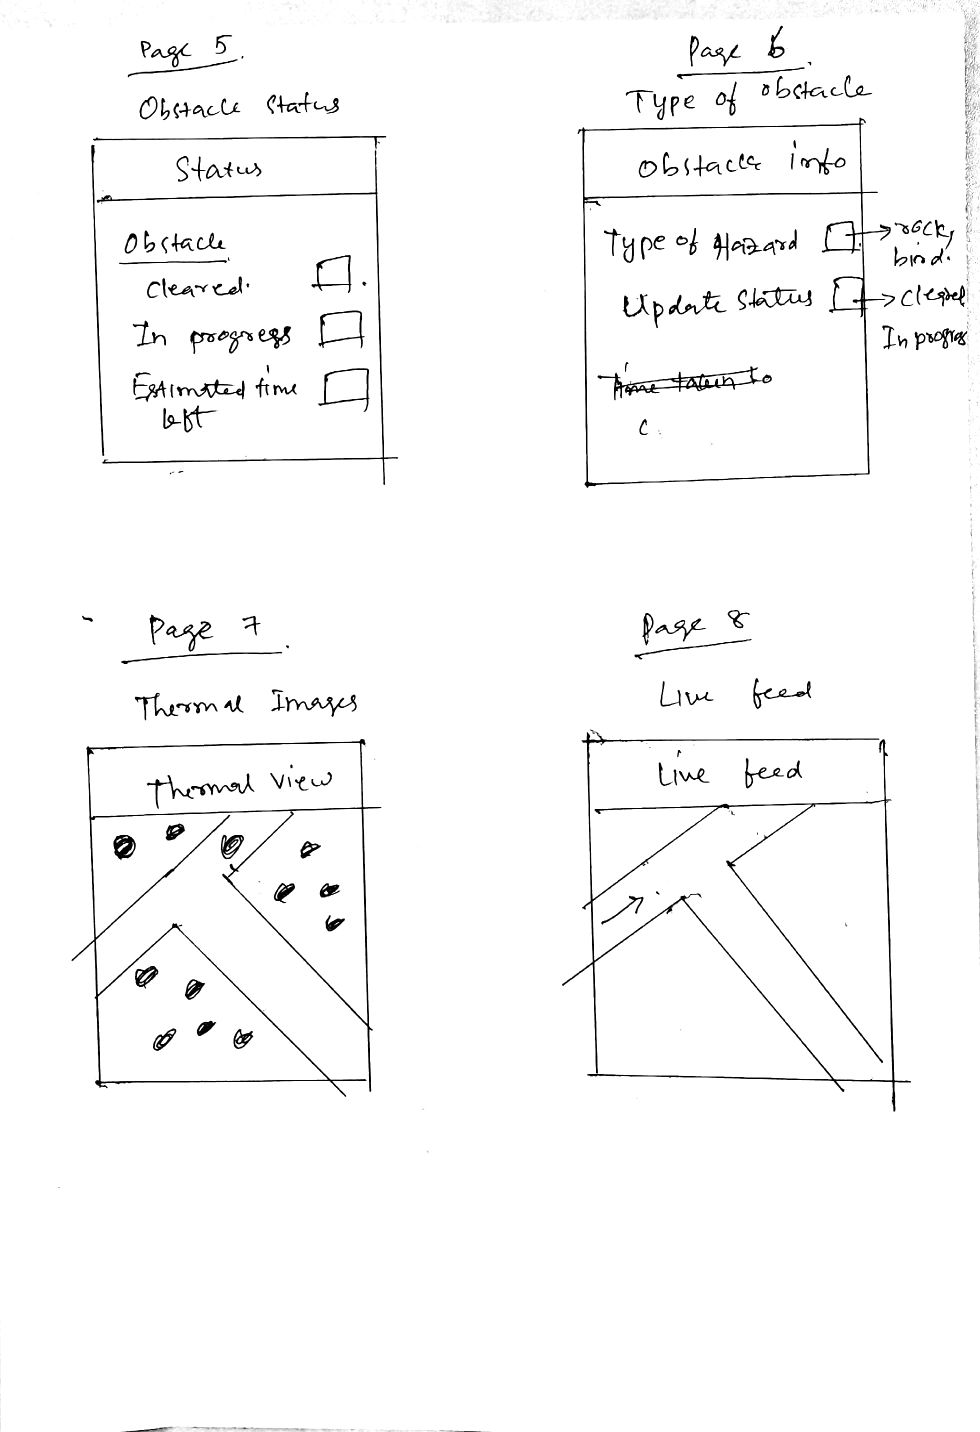 Page 5.
Obstacle Status
Status
Obstacle
Cleared.
In progress
Estimated time
left
Page 6.
Type of obstacle
Obstacle info
Type of Hazard
rock,
bird.
Update Status
Cleared
In progress
Time taken to
c
Page 7.
Thermal Images
Thermal View
Page 8
Live feed
Live feed